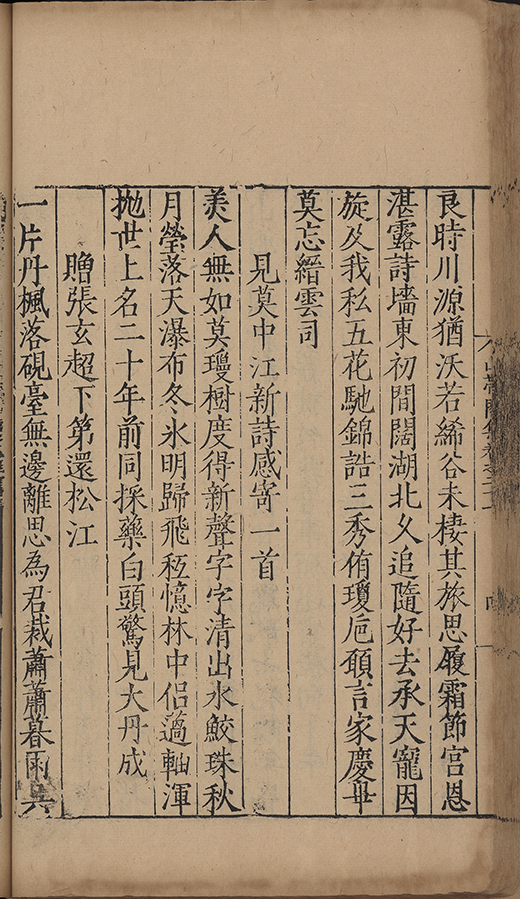 良時川源猶沃若絺谷未棲其旅思履霜節宮恩
湛露詩墻東初間闊湖北久追隨好去承天寵因
旋及我私五花馳錦誥三秀侑瓊卮願言家慶畢
莫忘縉雲司
見莫中江新詩感寄一首
美人無如莫瓊樹度得新聲字字清出水鮫珠秋
月瑩落天瀑布冬氷明歸飛秪憶林中侶薖軸渾
拋世上名二十年前同採藥白頭驚見大丹成
贈張玄超下第還松江
一片丹楓落硯臺無邊離思為君裁蕭蕭暮雨六